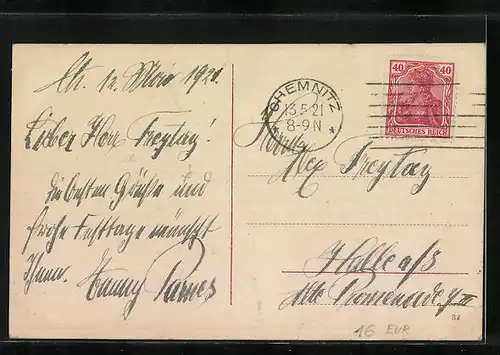 12. Mai 1921.
Lieber Herr Freytag!
die besten Grüße und
frohe Festtage wünscht
Ihnen. Emmy
CHEMNITZ
13.5.21
8-9N
40 40
DEUTSCHES REICH
Freytag
Halle a/S
Alte Promenade
16 EUR